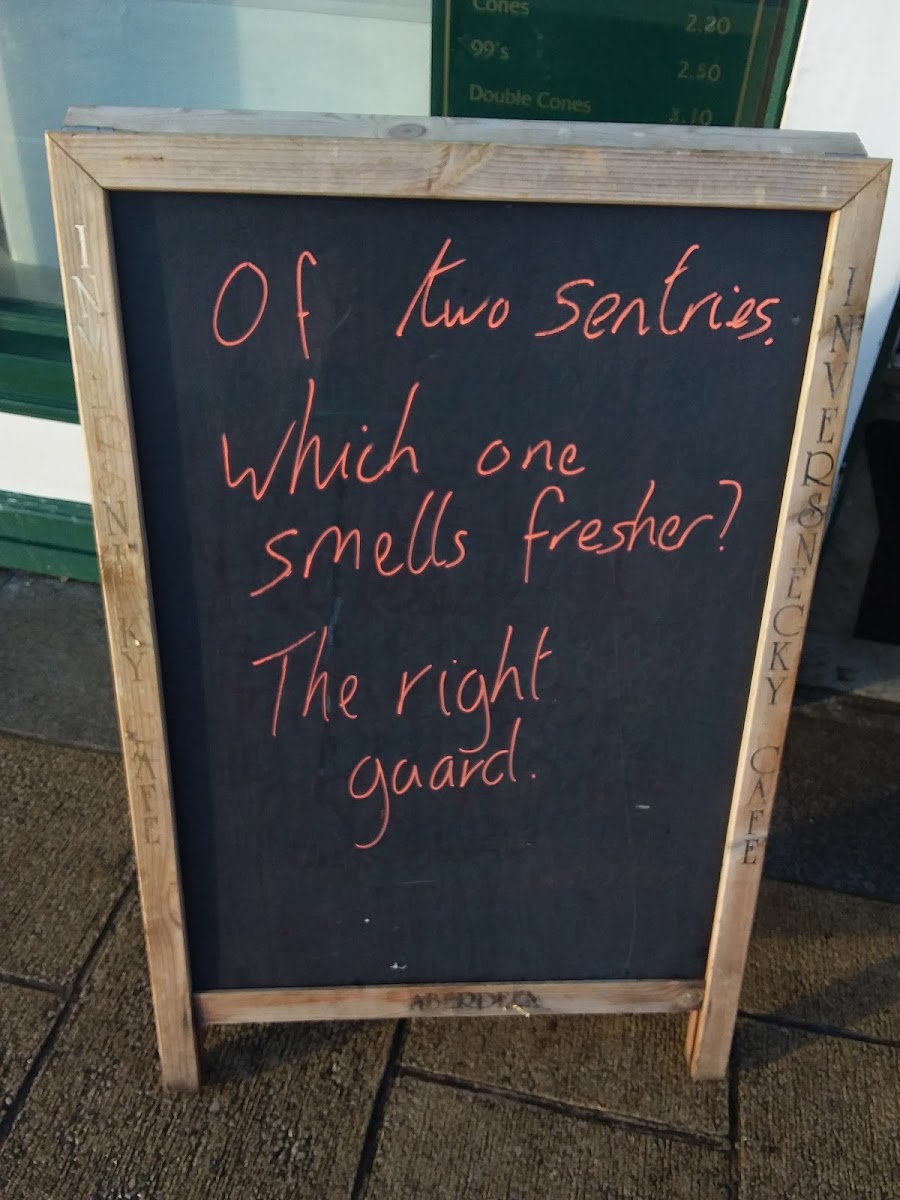 Cones 2.20
99's 2.50
Double Cones 3.10
Of two sentries.
Which one
smells fresher?
The right
guard.
INVERSNECKY CAFE
INVERSNECKY CAFE
ABERDEEN